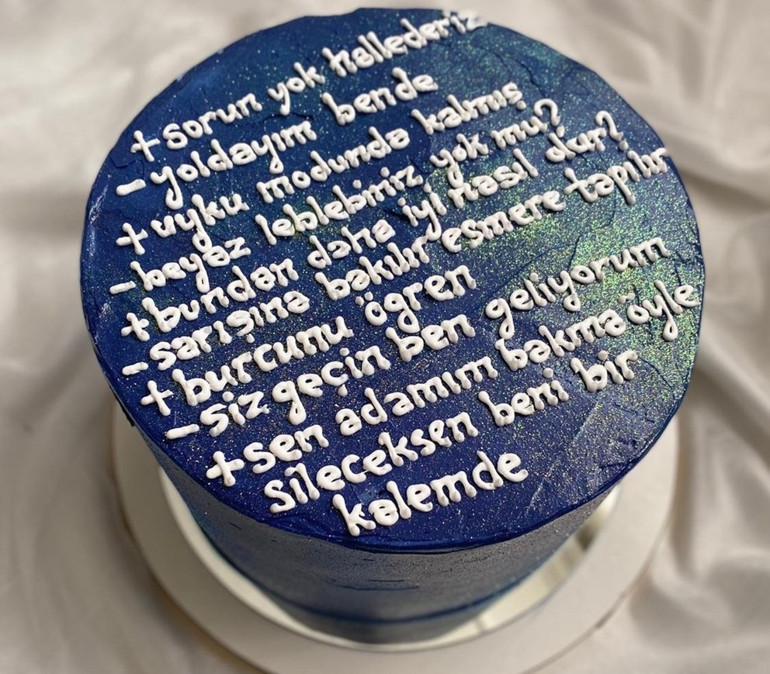 +sorun yok hallederiz
-yoldayım bende
+uyku modunda kalmış
-beyaz leblebimiz yok mu?
+bundan daha iyi nasıl olur?
-sarışına bakılır esmere tapılır
+burcunu öğren
-siz geçin ben geliyorum
+sen adamım bakma öyle
sileceksen beni bir
kalemde